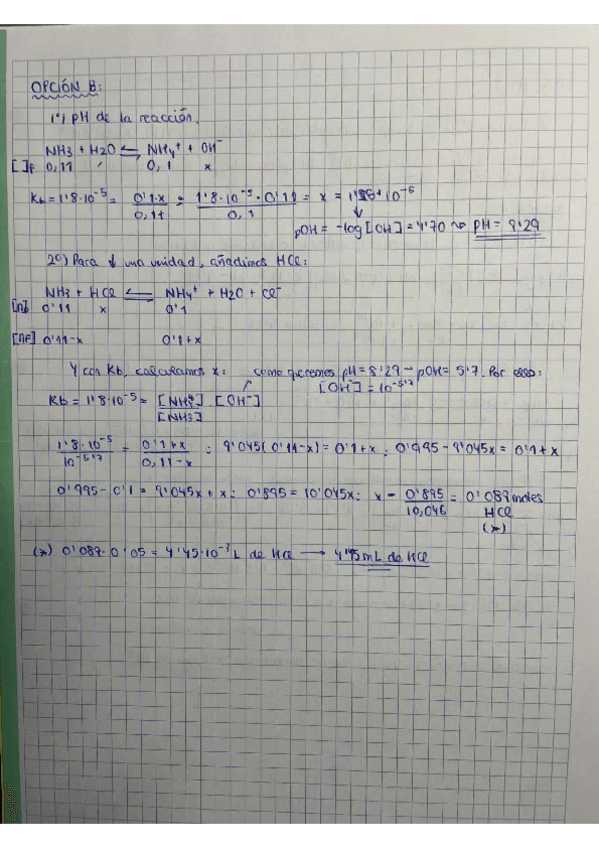 OPCIÓN B:
1º) pH de la reacción.
NH3 + H2O ⇌ NH4⁺ + OH⁻
[ ]f 0,11 0,1 x
Kb = 1'8·10⁻⁵ = 0'1·x / 0,11 = 1'8·10⁻⁵·0'11 / 0,1 = x = 1'98·10⁻⁵
pOH = -log[OH] = 4'70 → pH = 9'29
2º) Para ↓ una unidad, añadimos HCl:
NH3 + HCl ⇌ NH4⁺ + H2O + Cl⁻
[n] 0'11 x 0'1
[nF] 0'11-x 0'1+x
Y con Kb, calculamos x: como queremos pH = 8'29 → pOH = 5'7. Por eso:
[OH⁻] = 10⁻⁵'⁷
Kb = 1'8·10⁻⁵ = [NH4⁺]·[OH⁻] / [NH3]
1'8·10⁻⁵ / 10⁻⁵'⁷ = 0'1+x / 0,11-x : 9'045(0'11-x) = 0'1+x : 0'995 - 9'045x = 0'1+x
0'995 - 0'1 = 9'045x + x : 0'895 = 10'045x : x = 0'895 / 10,046 = 0'089 moles
HCl
(*)
(*) 0'089·0'05 = 4'45·10⁻³ L de HCl → 4'45 mL de HCl